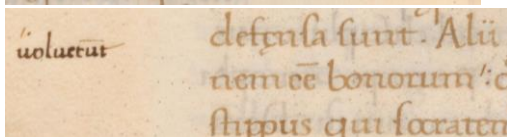 uoluerūt
defęnsa sunt. Alii
nem eē bonorum
stippus qui socratem